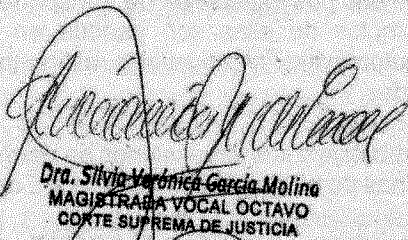 Dra. Silvia Verónica García Molina
MAGISTRADA VOCAL OCTAVO
CORTE SUPREMA DE JUSTICIA